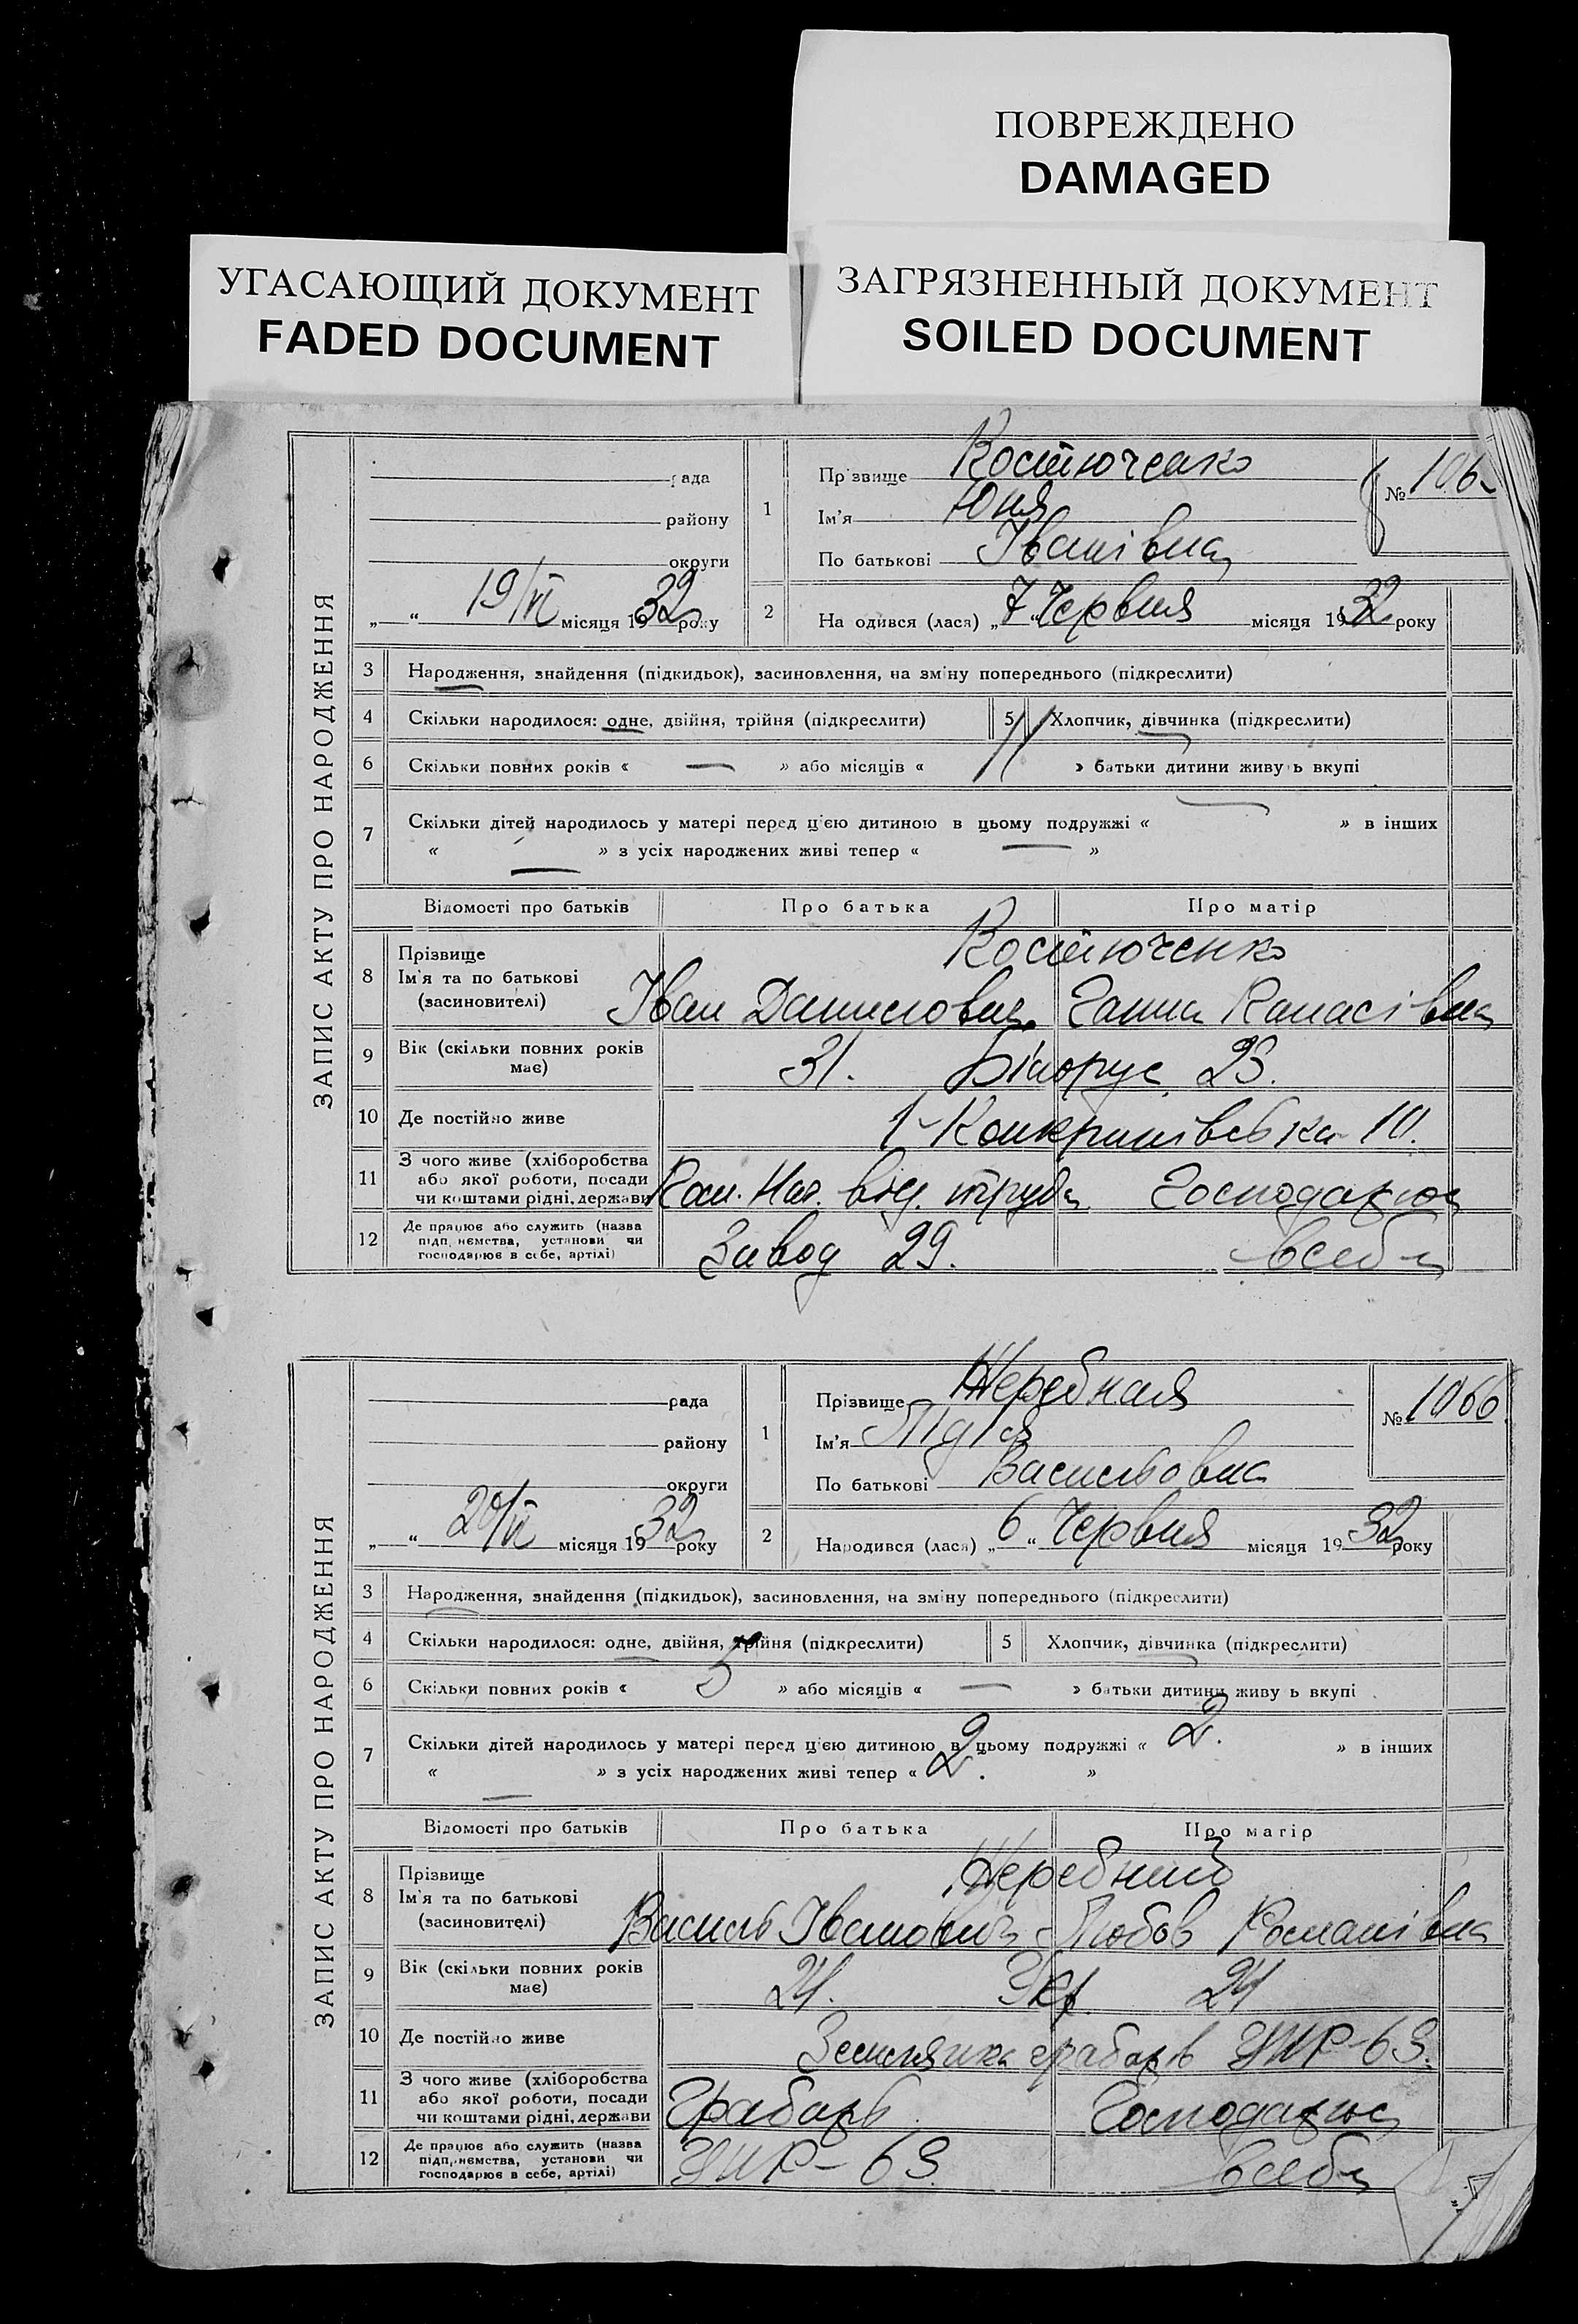 ПОВРЕЖДЕНО
DAMAGED
УГАСАЮЩИЙ ДОКУМЕНТ
FADED DOCUMENT
ЗАГРЯЗНЕННЫЙ ДОКУМЕНТ
SOILED DOCUMENT
ЗАПИС АКТУ ПРО НАРОДЖЕННЯ
рада
району
округи
„ “ 19/VI місяця 1932 року
1
Прізвище Костюченко
Ім'я Юня
По батькові Іванівна
№ 106
2 На одився (лася) „7“ Червня місяця 1932 року
3 Народження, знайдення (підкидьок), засиновлення, на зміну попереднього (підкреслити)
4 Скільки народилося: одне, двійня, трійня (підкреслити) 5 Хлопчик, дівчинка (підкреслити)
6 Скільки повних років « — » або місяців « 11 » батьки дитини живу ь вкупі
7 Скільки дітей народилось у матері перед ц'єю дитиною в цьому подружжі « — » в інших
« — » з усіх народжених живі тепер « — »
Відомості про батьків Про батька Про матір
8 Прізвище Костюченко
Ім'я та по батькові
(засиновителі) Іван Данилович Ганна Панасівна
9 Вік (скільки повних років має) 31. Білорус. 23.
10 Де постійно живе 10.
11 З чого живе (хліборобства
або якої роботи, посади
чи коштами рідні, держави від. труда Господарює
12 Де працює або служить (назва
підприємства, установи чи
господарює в себе, артілі) Завод 29. всеб
ЗАПИС АКТУ ПРО НАРОДЖЕННЯ
рада
району
округи
„ “ 20/VI місяця 1932 року
1
Прізвище Жеребная
Ім'я Лідія
По батькові Васильовна
№ 1066
2 Народився (лася) „6“ Червня місяця 1932 року
3 Народження, знайдення (підкидьок), засиновлення, на зміну попереднього (підкреслити)
4 Скільки народилося: одне, двійня, трійня (підкреслити) 5 Хлопчик, дівчинка (підкреслити)
6 Скільки повних років « 5 » або місяців « — » батьки дитини живу ь вкупі
7 Скільки дітей народилось у матері перед ц'єю дитиною в цьому подружжі « 2. » в інших
« — » з усіх народжених живі тепер « 2. »
Відомості про батьків Про батька Про матір
8 Прізвище Жеребний
Ім'я та по батькові
(засиновителі) Василь Іванович Любов Романівна
9 Вік (скільки повних років має) 24. Укр. 24
10 Де постійно живе Землянка грабарів
11 З чого живе (хліборобства
або якої роботи, посади
чи коштами рідні, держави Грабарь Господарює
12 Де працює або служить (назва
підприємства, установи чи
господарює в себе, артілі) всеб